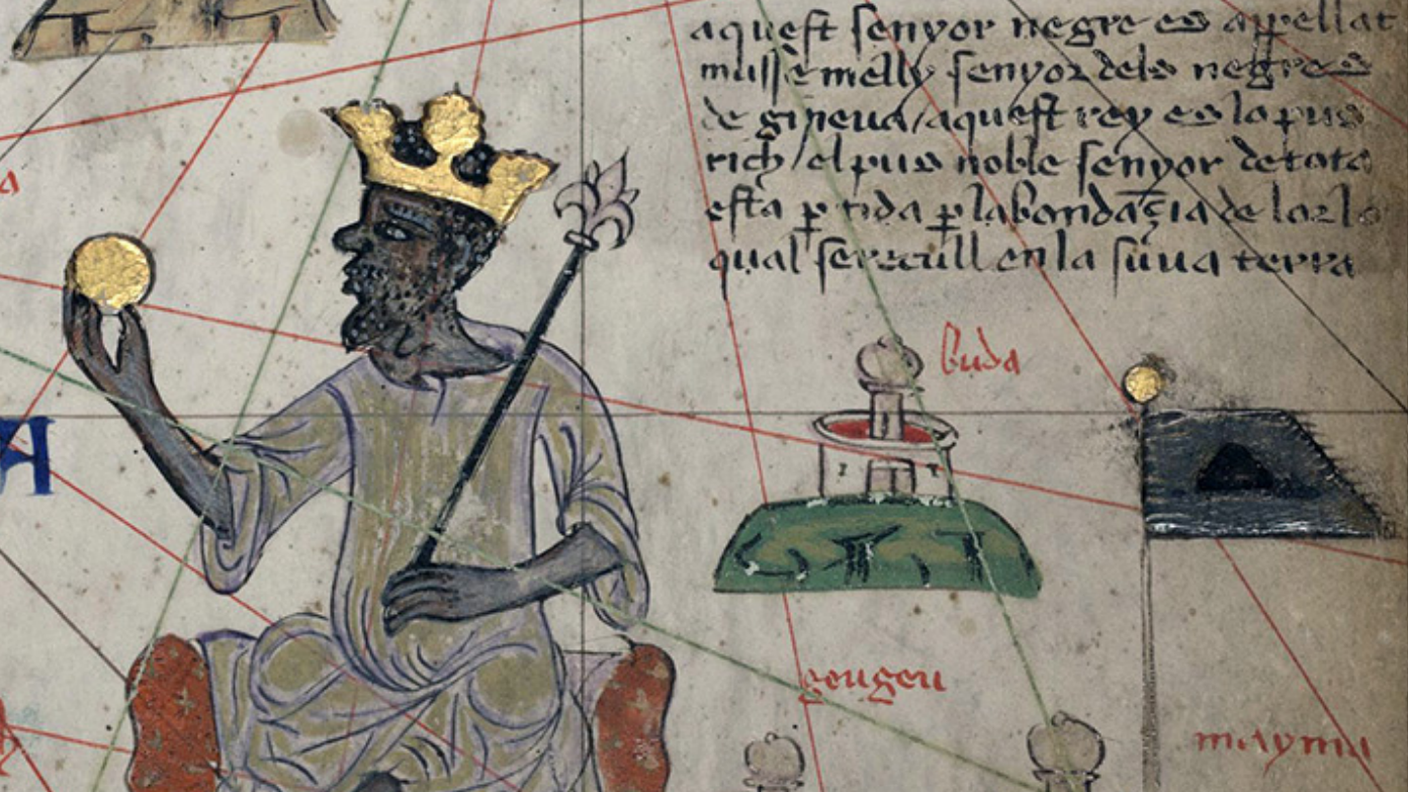 aquest senyor negre es appellat
musse melly senyor dels negres
de gineua / aquest rey es lo pus
rich / el pus noble senyor de tota
esta ptida p labondaçia de lor lo
qual se recull en la suua terra
a
buda
A
geugeu
mayma